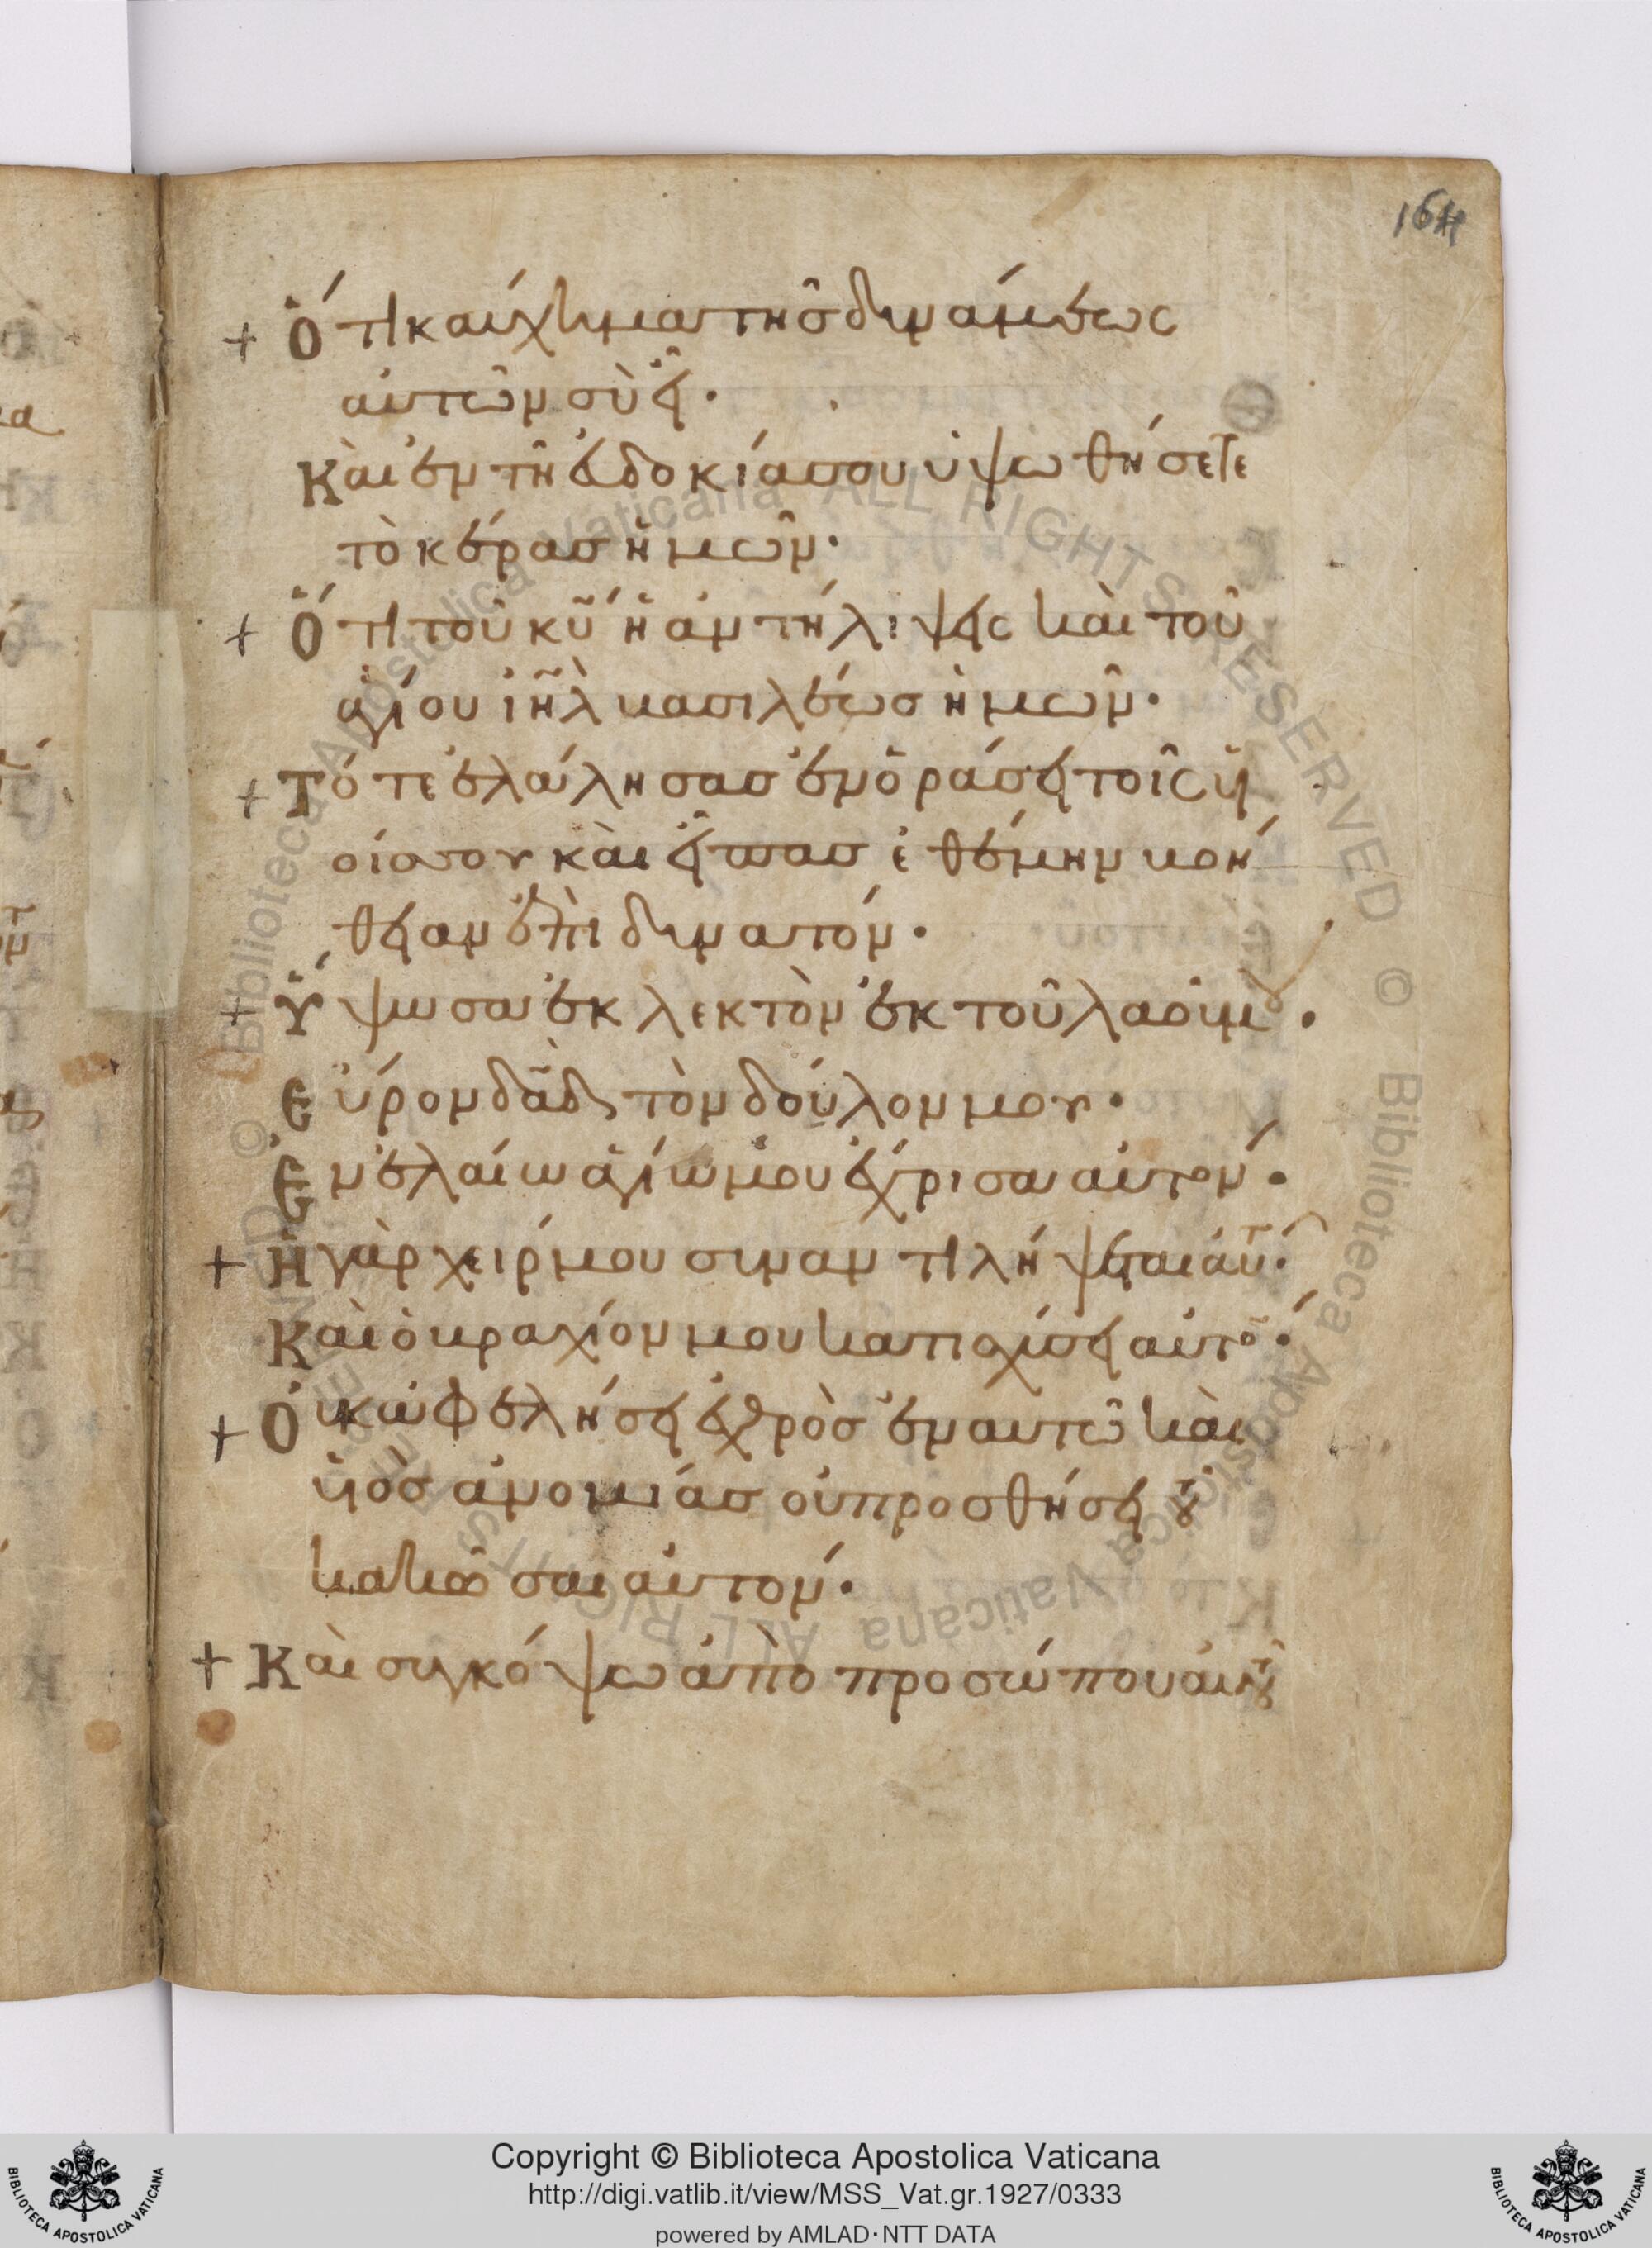 164
+ Ὅτι καύχημα τῆς δυνάμεως
αὐτῶν σὺ εἶ·
Καὶ ἐν τῆ εὐδοκία σου ὑψωθήσετε
τὸ κέρας ἡμῶν·
+ Ὅτι τοῦ κ̅υ̅ ἡ ἀντήλιψεις καὶ τοῦ
ἁγίου ἰ̅η̅λ̅ βασιλέως ἡμῶν·
+ Τότε ἐλάλησας ἐν ὁράσει τοῖς ὑι
οίς σου καὶ εἶπας ἐθέμην βοή
θειαν ἐπὶ δυνατόν·
+ Ὕψωσα ἐκλεκτὸν ἐκ τοῦ λαοῦ μου·
Εὑρον δ̅α̅δ̅ τὸν δούλον μου·
Ἐν ἐλαίω ἁγίω μου ἔχρισα αὐτον·
+ Η γὰρ χείρ μου συναντιλήψεται αὐτ·
Καὶ ὁ βραχίον μου κατισχύσει αὐτο·
+ Οὐκ ὠφελήσει ἐχθρὸς ἐν αυτῶ καὶ
ὑιὸς ἀνομιάς οὐ προσθήσει τοῦ
κακῶσαι αὐτον·
+ Καὶ συγκόψω ἀπὸ προσώπου αὐτοῦ
Copyright © Biblioteca Apostolica Vaticana
http://digi.vatlib.it/view/MSS_Vat.gr.1927/0333
powered by AMLAD·NTT DATA
BIBLIOTECA APOSTOLICA VATICANA
BIBLIOTECA APOSTOLICA VATICANA